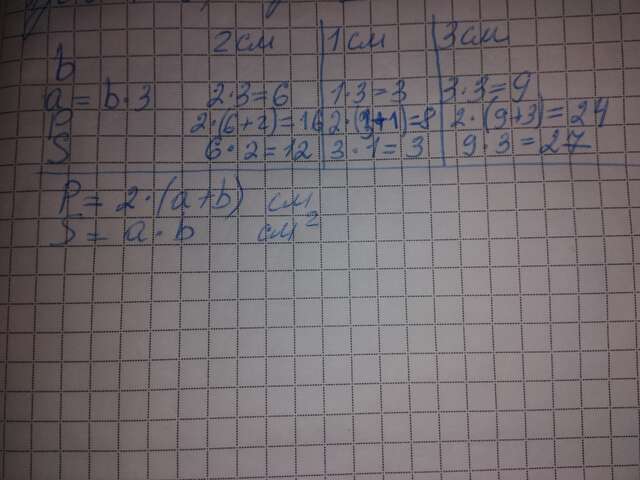 2 см 1 см 3 см
b
a = b·3 2·3=6 1·3=3 3·3=9
P 2·(6+2)=16 2·(3+1)=8 2·(9+3)=24
S 6·2=12 3·1=3 9·3=27
P = 2·(a+b) см
S = a·b см²